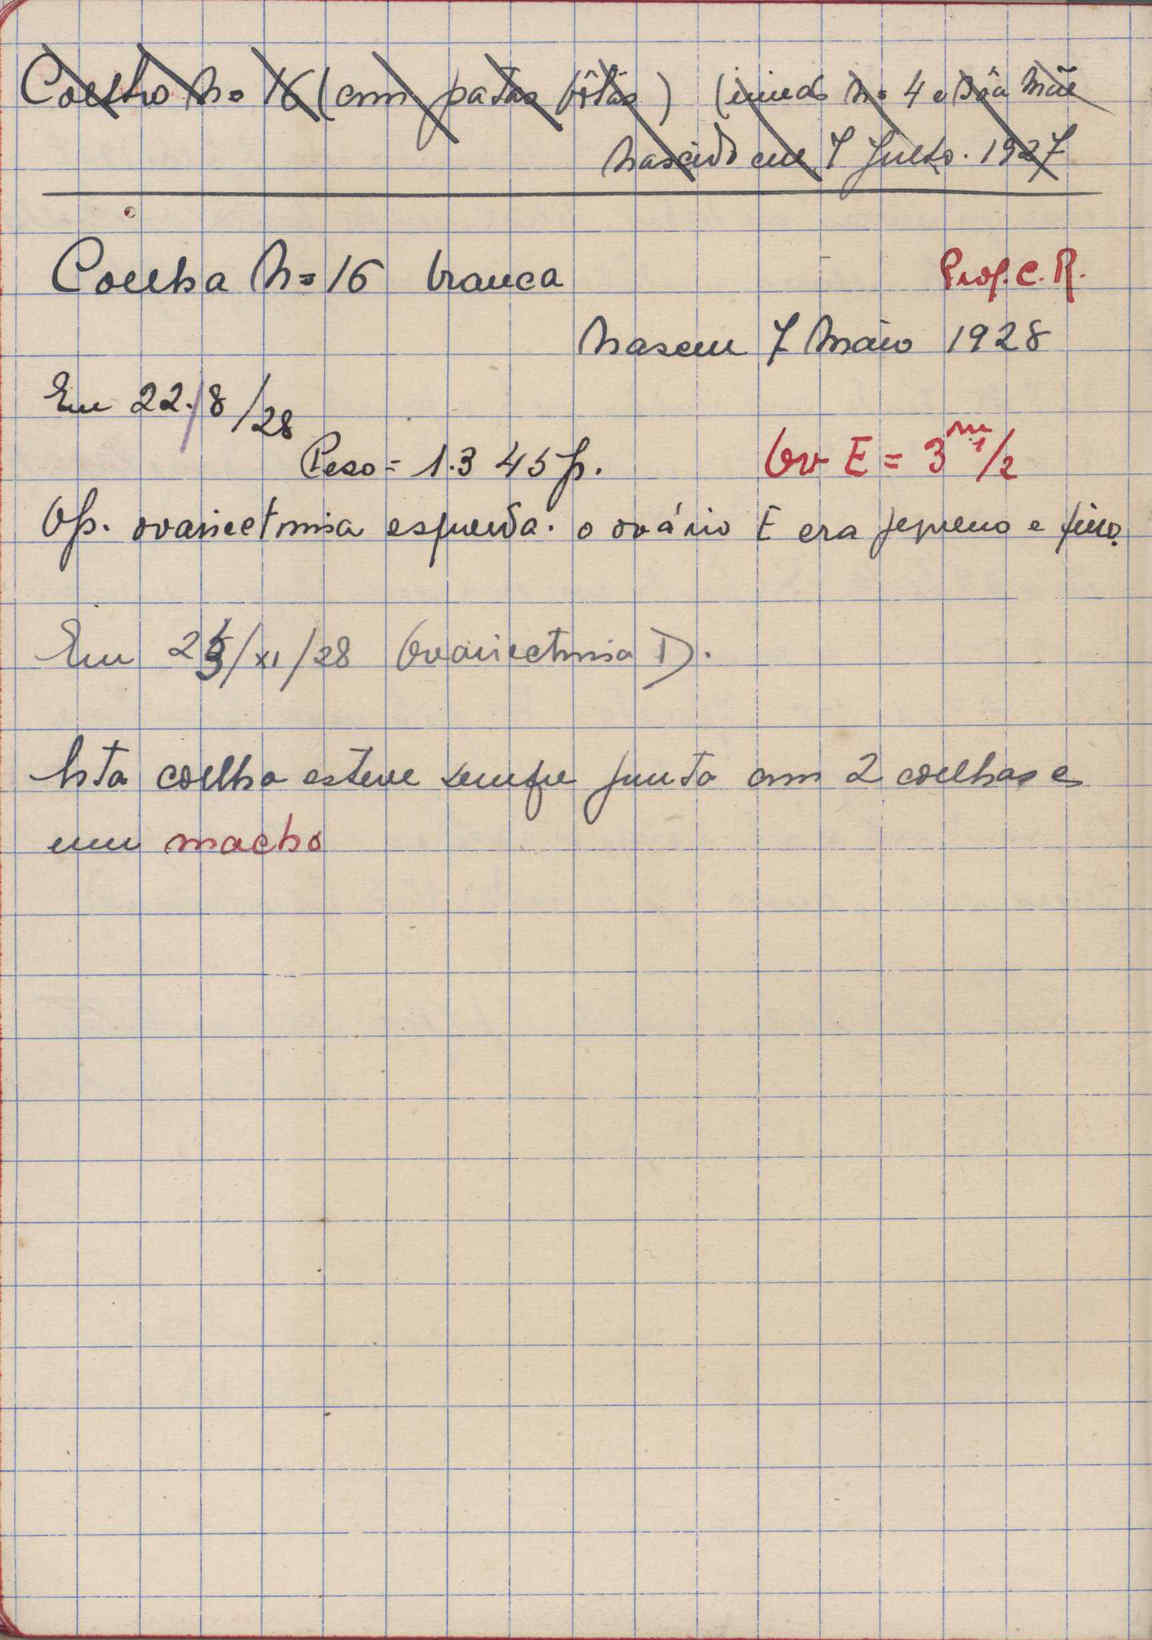 Coelho Nº 16 (com patas bôtas) (irmão Nº 4 e Mãe
Nascido em 7 Julho. 1927
Coelha Nº 16 branca Prof. C. R.
Nasceu 7 Maio 1928
Em 22/8/28
Peso = 1.345 gr. Ov E = 3 m 1/2
Op. ovariectomia esquerda. o ovário E era pequeno e fino.
Em 25/XI/28 Ovariectomia D.
Esta coelha esteve sempre junta com 2 coelhas e
um macho